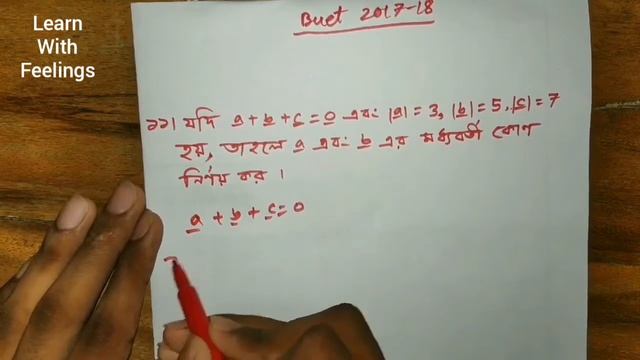 Learn
With
Feelings
Buet 2017-18
১১। যদি a + b + c = 0 এবং |a| = 3, |b| = 5, |c| = 7
হয়, তাহলে a এবং b এর মধ্যবর্তী কোণ
নির্ণয় কর।
a + b + c = 0